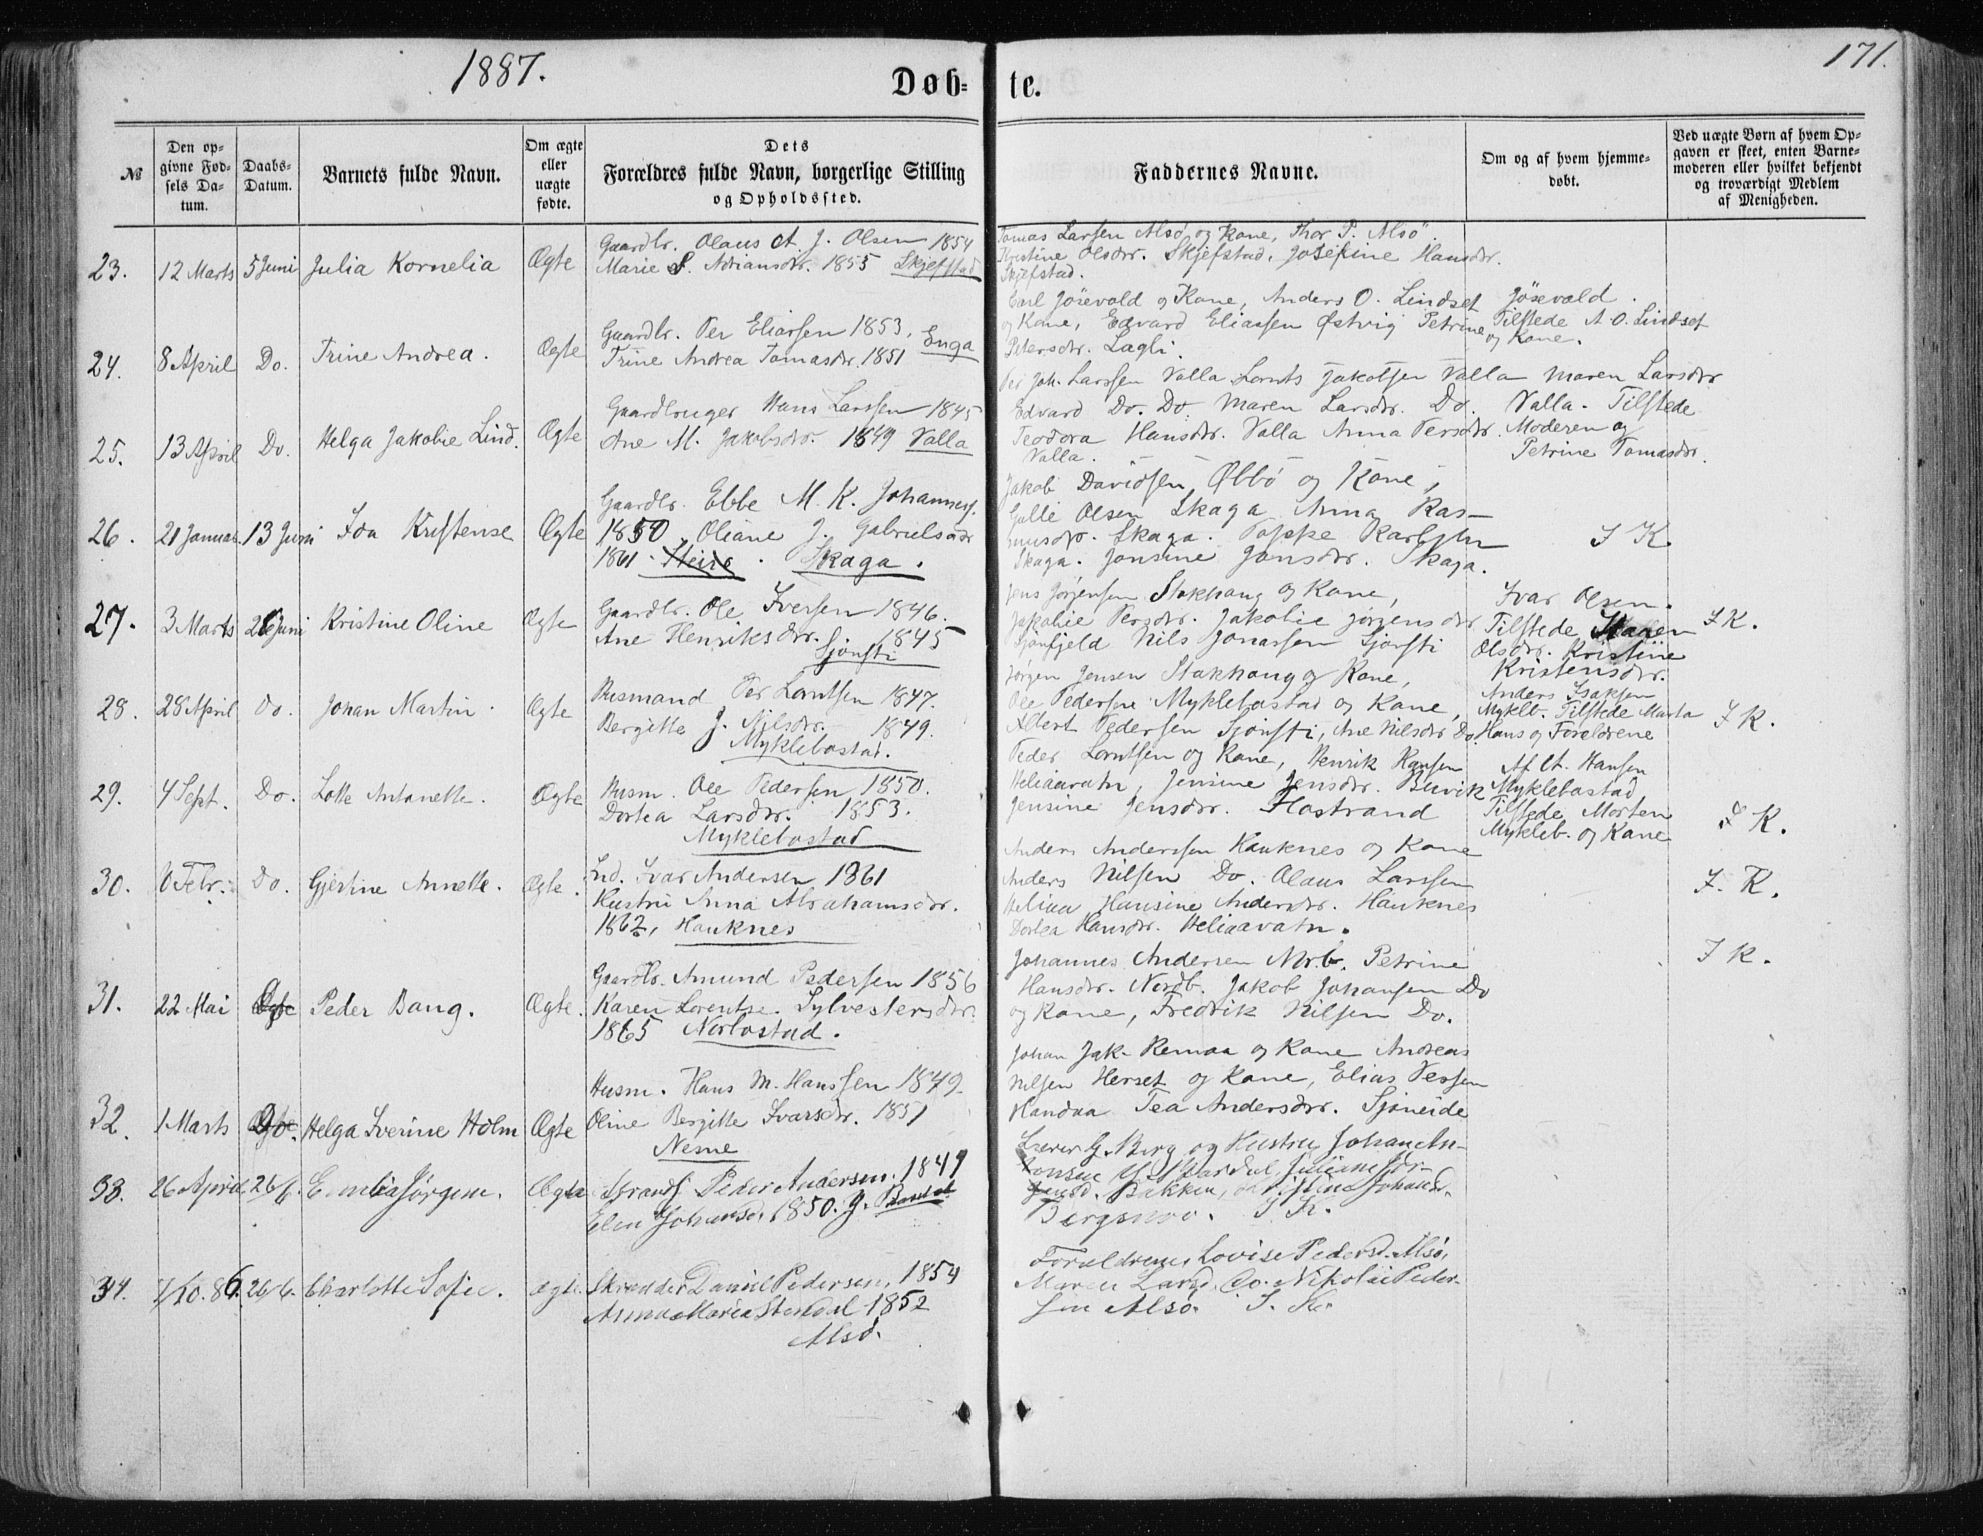 1887.
Døb-
te.
171.
№
Den op-
givne Fød-
sels Da-
tum.
Daabs-
Datum.
Barnets fulde Navn.
Om ægte
eller
uægte
fødte.
Dets
Forældres fulde Navn, borgerlige Stilling
og Opholdssted.
Faddernes Navne.
Om og af hvem hjemme-
døbt.
Ved uægte Børn af hvem Op-
gaven er skeet, enten Barne-
moderen eller hvilket bekjendt
og troværdigt Medlem
af Menigheden.
23.
12 Marts
5 Juni
Julia Kornelia
Ægte
Gaardbr. Olaus A. J. Olsen 1854
Marie S. Adriansdr. 1855 Skjefstad
Tomas Larsen Alsø og Kone, Thor P. Alsø
Kristine Olsdr. Skjefstad, Josefine Hansdr.
Skjefstad.
24.
8 April
Do.
Trine Andrea.
Ægte
Gaardbr. Per Eliassen 1853.
Trine Andrea Tomasdr. 1851 Enga
Carl Jösevold og Kone, Anders O. Lindset
og Kone, Edvard Eliassen Østvig Petrine
Petersdr. Lagli.
Jösevald.
Tilstede A. O. Lindset
og Kone.
25.
13 April
Do.
Helga Jakobie Lind.
Ægte
Gaardbruger Hans Larssen 1845
Ane M. Jakobsdr. 1849 Valla
Per Joh. Larssen Valla Lornts Jakobsen Valla
Edvard Do. Do. Maren Larsdr. Do.
Teodora Hansdr. Valla Anna Persdr.
Valla.
Maren Larsdr
Valla - Tilstede
Moderen og
Petrine Tomasdr.
26.
21 Januar
13 Juni
Ida Kristense
Ægte
Gaardbr. Ebbe M. K. Johanness.
1850 Oliane J. Gabrielsdr
1861. Skaga.
Jakob Davidsen Øbbø og Kone,
Gulle Olsen Skaga Anna Ras-
musdr. Skaga. Toppe Karlsen
Skaga. Jonsine Jonsdr. Skaga.
I K.
27.
3 Marts
26 Juni
Kristine Oline
Ægte
Gaardbr. Ole Iversen 1846.
Ane Henriksdr. 1845
Sjonsti
Jens Jørgensen Stokhaug og Kone,
Jakobie Persdr. Jakobie Jörgensdr
Sjonfjeld Nils Jonassen Sjonsti
Ivar Olsen.
Tilstede Maren
Olsdr. Kristine
Kristensdr.
I K.
28.
28 April
Do.
Johan Martin.
Ægte
Husmand Per Lorntsen 1847.
Bergitte J. Nilsdr. 1849.
Myklebostad.
Jörgen Jensen Stokhaug og Kone,
Ole Pedersen Myklebostad og Kone,
Albert Pedersen Sjonsti, Ane Nilsdr Do.
Anders Isaksen
Mykleb. Tilstede Marta
Hans og Foreldrene
I K.
29.
4 Sept.
Do.
Lotte Antonette.
Ægte
Husm. Ole Pedersen 1850.
Dortea Larsdr. 1853.
Myklebostad
Peder Lorntsen og Kone, Henrik Hansen
Heliaavatn, Jensine Jensdr. Buvik
Jensine Jensdr. Flostrand
Af Lt. Hansen
Myklebostad
Tilstede Morten
Mykleb. og Kone
I K.
30.
6 Febr.
Do.
Gjertine Annette.
Ægte.
Ind. Ivar Andersen 1861
Hustru Anna Abrahamsdr.
1862, Hauknes
Anders Anderssen Hauknes og Kone
Anders Nilsen Do. Olaus Larssen
Heliaa Hansine Andersdr. Hauknes
Dortea Hansdr. Heliaavatn.
I. K.
31.
22 Mai
Peder Bang.
Ægte.
Gaardbr. Amund Pedersen 1856
Karen Lorentse Sylvestersdr.
1865 Norbostad.
Johannes Andersen Nrb. Petrine
Hansdr. Nordb. Jakob Johansen Do
og Kone, Fredrik Nilsen Do.
I K.
32.
1 Marts
Do.
Helga Iverine Holm
Ægte
Husm. Hans M. Hanssen 1849
Oline Bergitte Ivarsdr. 1851
Nesne
Johan Jak. Remaa og Kone Andreas
Nilsen Herset og Kone, Elias Pessen
Handaa Tea Andersdr. Sjöneide
33.
26 April
26/6.
Emilie Jörgine.
Ægte
Strands. Peder Andersen. 1849
Elen Johansd. 1850.
Lærer G. Berg og Hustru, Johan An-
tonsen
Bakken, Johansd.
I. K.
34.
7/10.86.
26/6.
Charlotte Sofie.
Ægte.
Skrædder Daniel Pedersen. 1854
Anna Maria Stendal 1852
Alsø.
Forældrene, Lovise Pedersd. Alsø,
Maren Larsd. Do. Nikolai Peder-
sen Alsø. I. K.